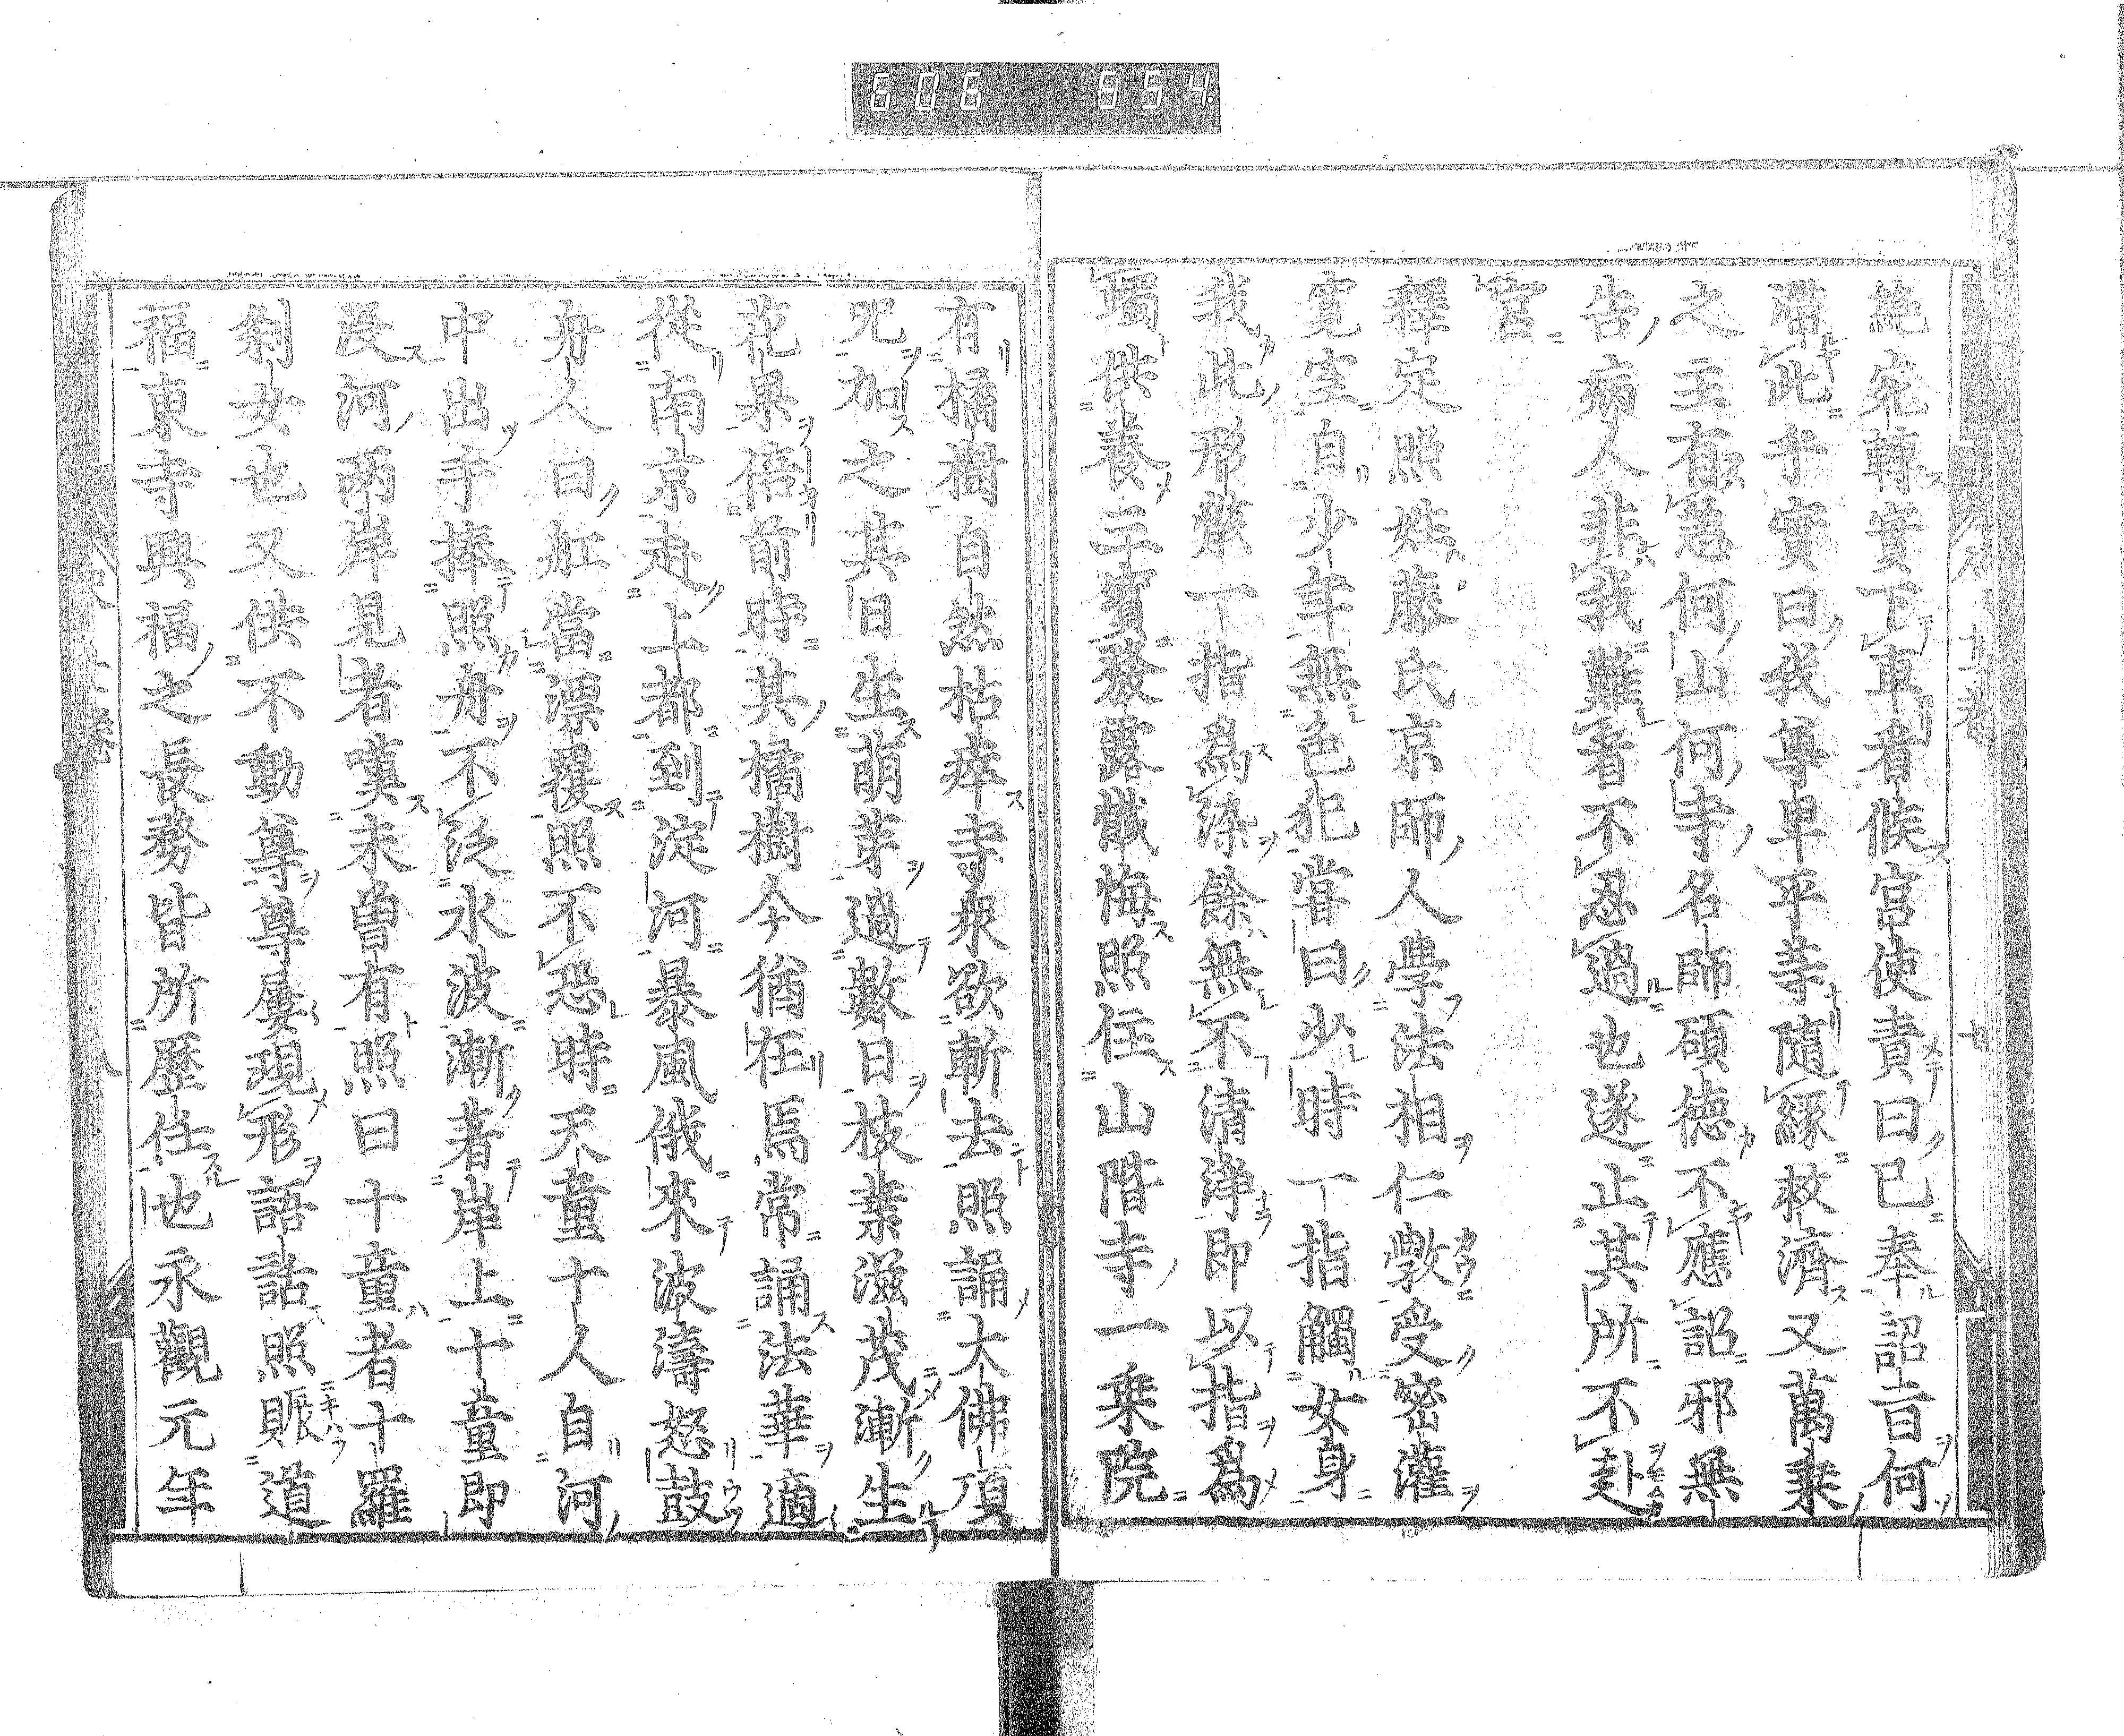 606 654
絶宛轉實下車看候宮使責曰已奉詔旨何
滯此乎實曰我尊卑平等隨緣救濟又萬乘
之主有恙何山何寺名師碩德不應詔邪無
告病人非我難看不忍過也遂止其所不赴
官
釋定照姓藤氏京師人學法相仁斆受密灌
寬空自少年無色犯甞曰少時一指觸女身
我此形骸一指爲染餘無不清淨即以指爲
蠋供養三寶發露懺悔照住山階寺一乘院
有橘樹自然枯瘁寺衆欲斬去照誦大佛頂
咒加之其日生萠芽過數日枝葉滋茂漸生
花果倍前時其橘樹今猶在焉常誦法華適
從南京赴上都到淀河暴風俄來波濤怒鼓
舟人曰舡當漂覆照不恐時天童十人自河
中出手捧照舟不泛水波漸著岸上十童即
沒河兩岸見者嘆未曾有照曰十童者十羅
刹女也又供不動尊尊屢現形語話照賑道
福東寺興福之長務皆所歷任也永觀元年